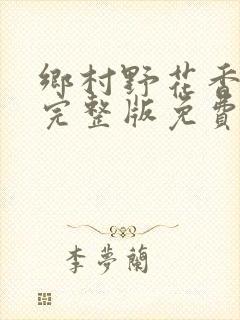 鄉村野花香
完整版免費
李夢蘭